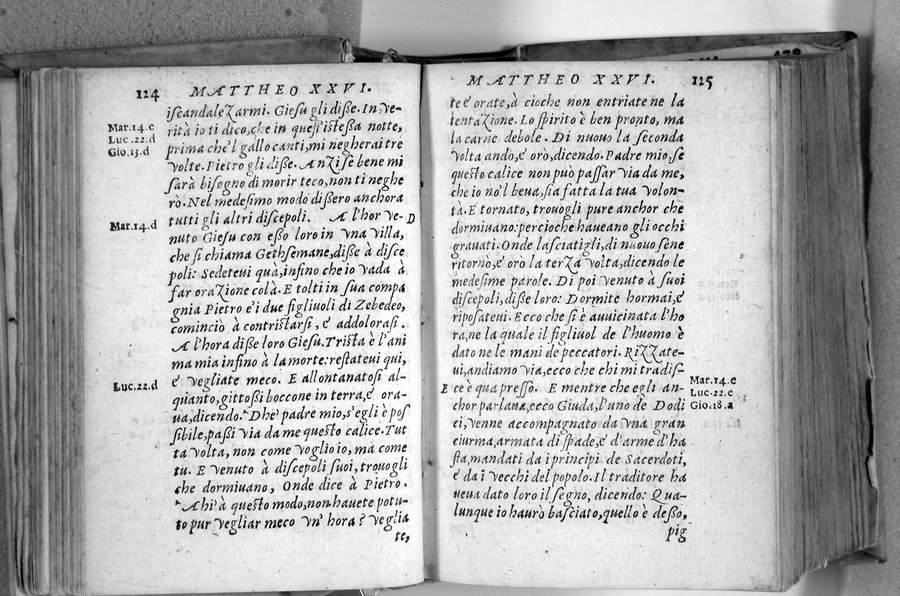 124 MATTHEO XXVI.
iscandalezarmi. Giesu gli disse. In ve-
Mar.14.c
rità io ti dico, che in quest'istessa notte,
Luc.22.d
prima che'l gallo canti, mi negherai tre
Gio.13.d
volte. Pietro gli disse. Anzi se bene mi
sarà bisogno di morir teco, non ti neghe
rò. Nel medesimo modo dissero anchora
Mar.14.d
tutti gli altri discepoli. A l'hor ve- D
nuto Giesu con esso loro in vna villa,
che si chiama Gethsemane, disse à disce
poli: Sedeteui quà, infino che io vada à
far orazione colà. E tolti in sua compa
gnia Pietro e i due figliuoli di Zebedeo,
cominciò à contristarsi, e addolorasi.
A l'hora disse loro Giesu. Trista è l'ani
ma mia infino à la morte: restateui qui,
Luc.22.d
e vegliate meco. E allontanatosi al-
quanto, gittossi boccone in terra, e ora-
ua, dicendo. Dhe' padre mio, s'egli è pos
sibile, passi via da me questo calice. Tut
ta volta, non come voglio io, ma come
tu. E venuto à discepoli suoi, trouogli
che dormiuano, Onde dice à Pietro.
Ahi à questo modo, non hauete potu-
to pur vegliar meco vn' hora? veglia
te,
MATTHEO XXVI. 125
te e orate, à cioche non entriate ne la
tentazione. Lo spirito è ben pronto, ma
la carne debole. Di nuouo la seconda
volta ando, e orò, dicendo. Padre mio, se
questo calice non può passar via da me,
che io no'l beua, sia fatta la tua volon-
tà. E tornato, trouogli pure anchor che
dormiuano: percioche haueano gli occhi
grauati. Onde lasciatigli, di nuouo sene
ritornò, e orò la terza volta, dicendo le
medesime parole. Di poi venuto à suoi
discepoli, disse loro: Dormite hormai, e
riposateui. Ecco che si è auuicinata l'ho
ra, ne la quale il figliuol de l'huomo è
dato ne le mani de peccatori. Rizzate-
ui, andiamo via, ecco che chi mi tradis-
Mar.14.e
E ce è qua presso. E mentre che egli an-
Luc.22.e
chor parlaua, ecco Giuda, l'uno de Dodi
Gio.18.a
ci, venne accompagnato da vna gran
ciurma, armata di spade, e d'arme d'ha
sta, mandati da i principi de Sacerdoti,
e da i vecchi del popolo. Il traditore ha
ueua dato loro il segno, dicendo: Qua-
lunque io haurò basciato, quello è desso,
pig